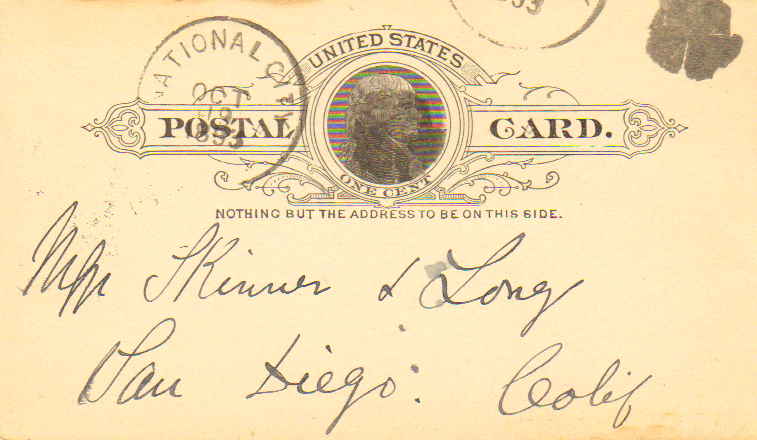 NATIONAL CITY
OCT
1893
UNITED STATES
POSTAL CARD.
ONE CENT
NOTHING BUT THE ADDRESS TO BE ON THIS SIDE.
Skinner & Long
San Diego. Calif